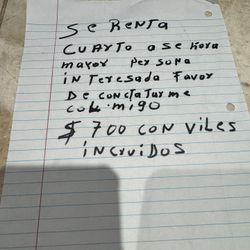 Se Renta
Cuarto a se ñora
mayor persona
interesada Favor
De conctatarme
con.migo
$ 700 con viles
incruidos